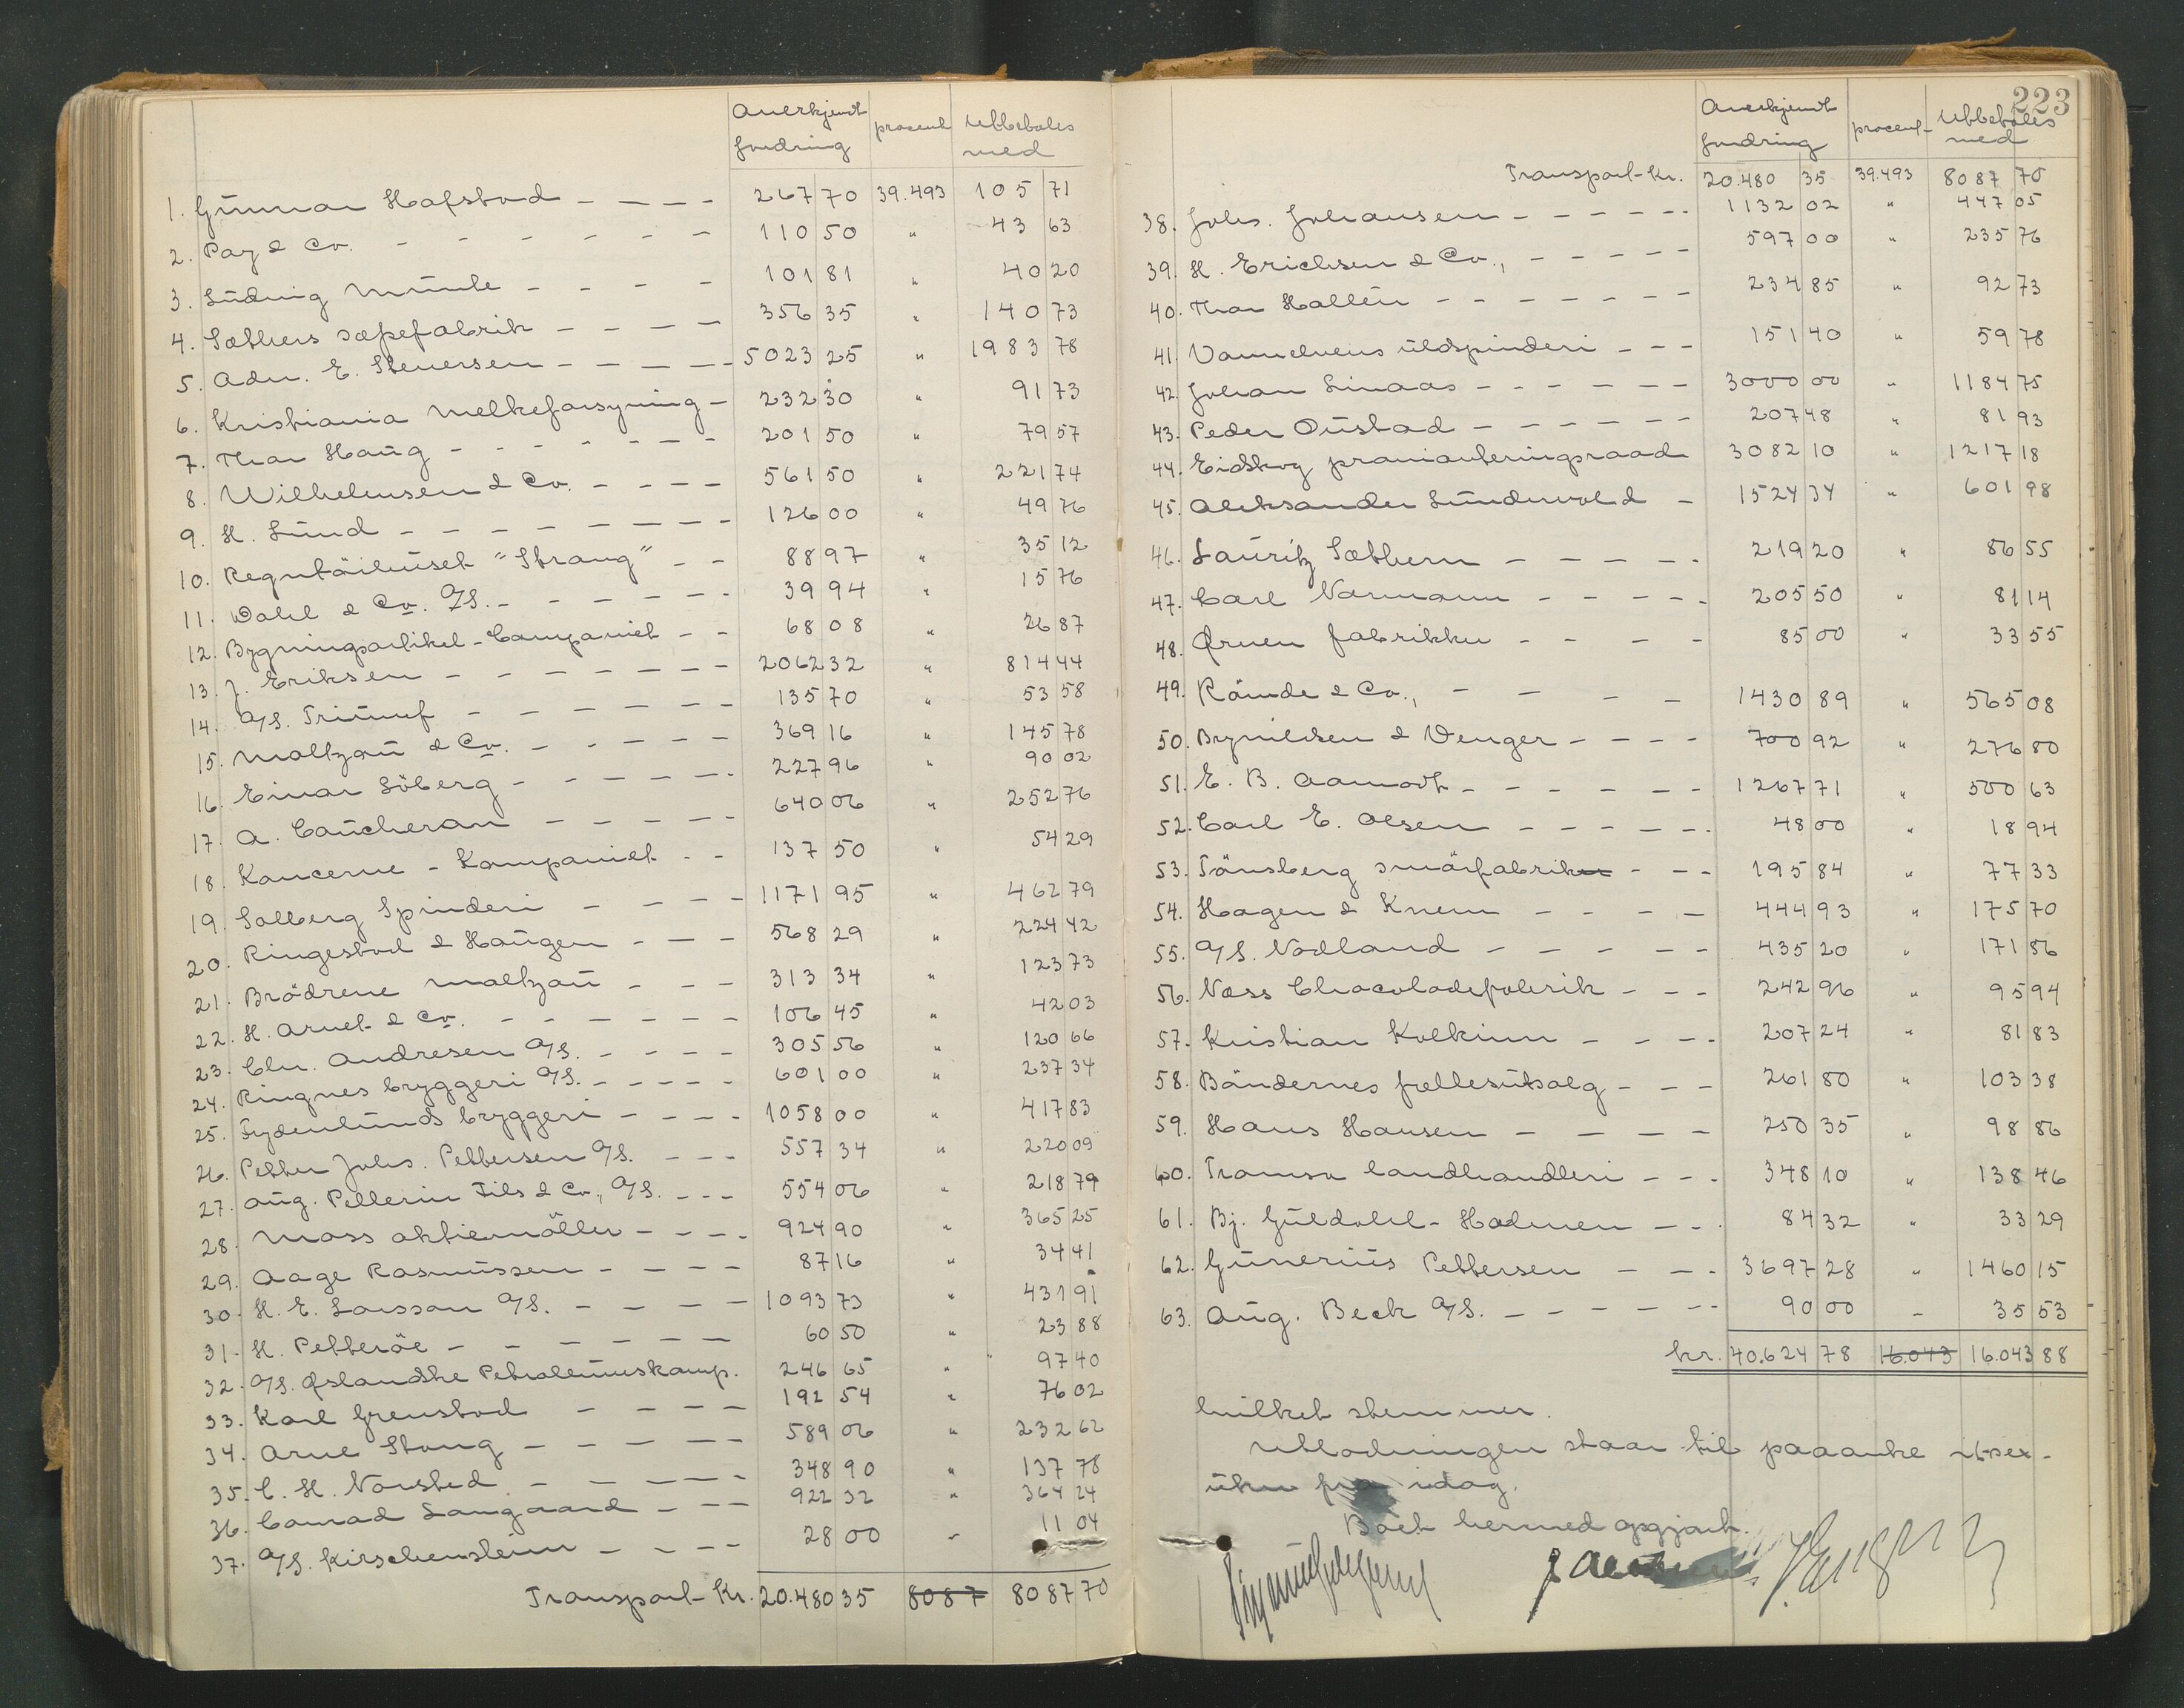 Anerkjendt procent Utbetales
fordring med
1. Gunnar Hafstad - - - - 267 70 39.493 105 71
2. Pay & Co. - - - - - - - 110 50 " 43 63
3. Ludvig Munte - - - - 101 81 " 40 20
4. Sæthers sæpefabrik - - - - 356 35 " 140 73
5. Adr. E. Stenersen - - - - - 5023 25 " 1983 78
6. Kristiania Melkeforsyning - 232 30 " 91 73
7. Thor Haug - - - - - - - 201 50 " 79 57
8. Wilhelmsen & Co. - - - - 561 50 " 221 74
9. H. Lund - - - - - - - - 126 00 " 49 76
10. "Strang" - - 88 97 " 35 12
11. Dahl & Co. A/S. - - - - - - 39 94 " 15 76
12. Bygningsartikel-Companiet - - 68 08 " 26 87
13. J. Eriksen - - - - - - - 2062 32 " 814 44
14. A/S. Triumf - - - - - - 135 70 " 53 58
15. Maltzau & Co. - - - - - 369 16 " 145 78
16. Einar Söberg - - - - - - 227 96 " 90 02
17. A. Caucheran - - - - - 640 06 " 252 76
18. Kancerne - Kompaniet - - 137 50 " 54 29
19. Solberg Spinderi - - - - 1171 95 " 462 79
20. Ringestad & Haugen - - - 568 29 " 224 42
21. Brödrene Maltzau - - - 313 34 " 123 73
22. H. Arnet & Co. - - - - - - 106 45 " 42 03
23. Chr. Andresen A/S. - - - - 305 56 " 120 66
24. Ringnes bryggeri A/S. - - - - - 601 00 " 237 34
25. Frydenlunds bryggeri - - - - 1058 00 " 417 83
26. Petter Johs. Pettersen A/S. - - - 557 34 " 220 09
27. Aug. Pellerin Fils & Co., A/S. - - - 554 06 " 218 79
28. Moss aktiemöller - - - - 924 90 " 365 25
29. Aage Rasmussen - - - - 87 16 " 34 41
30. H. E. Larsson A/S. - - - - 1093 73 " 431 91
31. H. Petteröe - - - - - - 60 50 " 23 88
32. A/S. Østlandske Petroleumskomp. 246 65 " 97 40
33. Karl Grenstad - - - - 192 54 " 76 02
34. Arne Stang - - - - - 589 06 " 232 62
35. C. H. Norsted - - - - - 348 90 " 137 78
36. Conrad Langaard - - - 922 32 " 364 24
37. A/S. Kirschensteim - - - - 28 00 " 11 04
Transport Kr. 20.480 35 8087 8087 70
223
Anerkjendt procent- Utbetales
fordring med
Transport-Kr. 20.480 35 39.493 8087 70
38. Johs. Johansen - - - - - - 1132 02 " 447 05
39. H. Erichsen & Co., - - - - - 597 00 " 235 76
40. Thor Hallén - - - - - - - 234 85 " 92 73
41. Vannelvens uldspinderi - - - 151 40 " 59 78
42. Johan Linaas - - - - - - 3000 00 " 1184 75
43. Peder Oustad - - - - - - 207 48 " 81 93
44. Eidskog provianteringsraad 3082 10 " 1217 18
45. Aleksander Lundervold - 1524 34 " 601 98
46. Lauritz Sæthern - - - - - 219 20 " 86 55
47. Carl Normann - - - - - 205 50 " 81 14
48. Ørnen fabrikker - - - - 85 00 " 33 55
49. Römde & Co., - - - - 1430 89 " 565 08
50. Brynildsen & Wenger - - - - 700 92 " 276 80
51. E. B. Aamodt - - - - - - 1267 71 " 500 63
52. Carl E. Olsen - - - - - - 48 00 " 18 94
53. Tönsberg smörfabrik - - - 195 84 " 77 33
54. Hagen & Knem - - - - 444 93 " 175 70
55. A/S. Nodland - - - - - 435 20 " 171 86
56. Næss Chocoladefabrik - - - 242 96 " 95 94
57. Kristian Kolkinn - - - - 207 24 " 81 83
58. Böndernes fællesutsalg - - - 261 80 " 103 38
59. Hans Hansen - - - - 250 35 " 98 86
60. Tromsø landhandleri - - - 348 10 " 138 46
61. Bj. Guldahl-Halmen - - - 84 32 " 33 29
62. Gunerius Pettersen - - - 3697 28 " 1460 15
63. Aug. Beck A/S. - - - - - - 90 00 " 35 53
kr. 40.624 78 16.043 16.043 88
hvilket stemmer.
Utlodningen staar til paaanke i sex
uker fra idag.
Boet hermed opgjort.